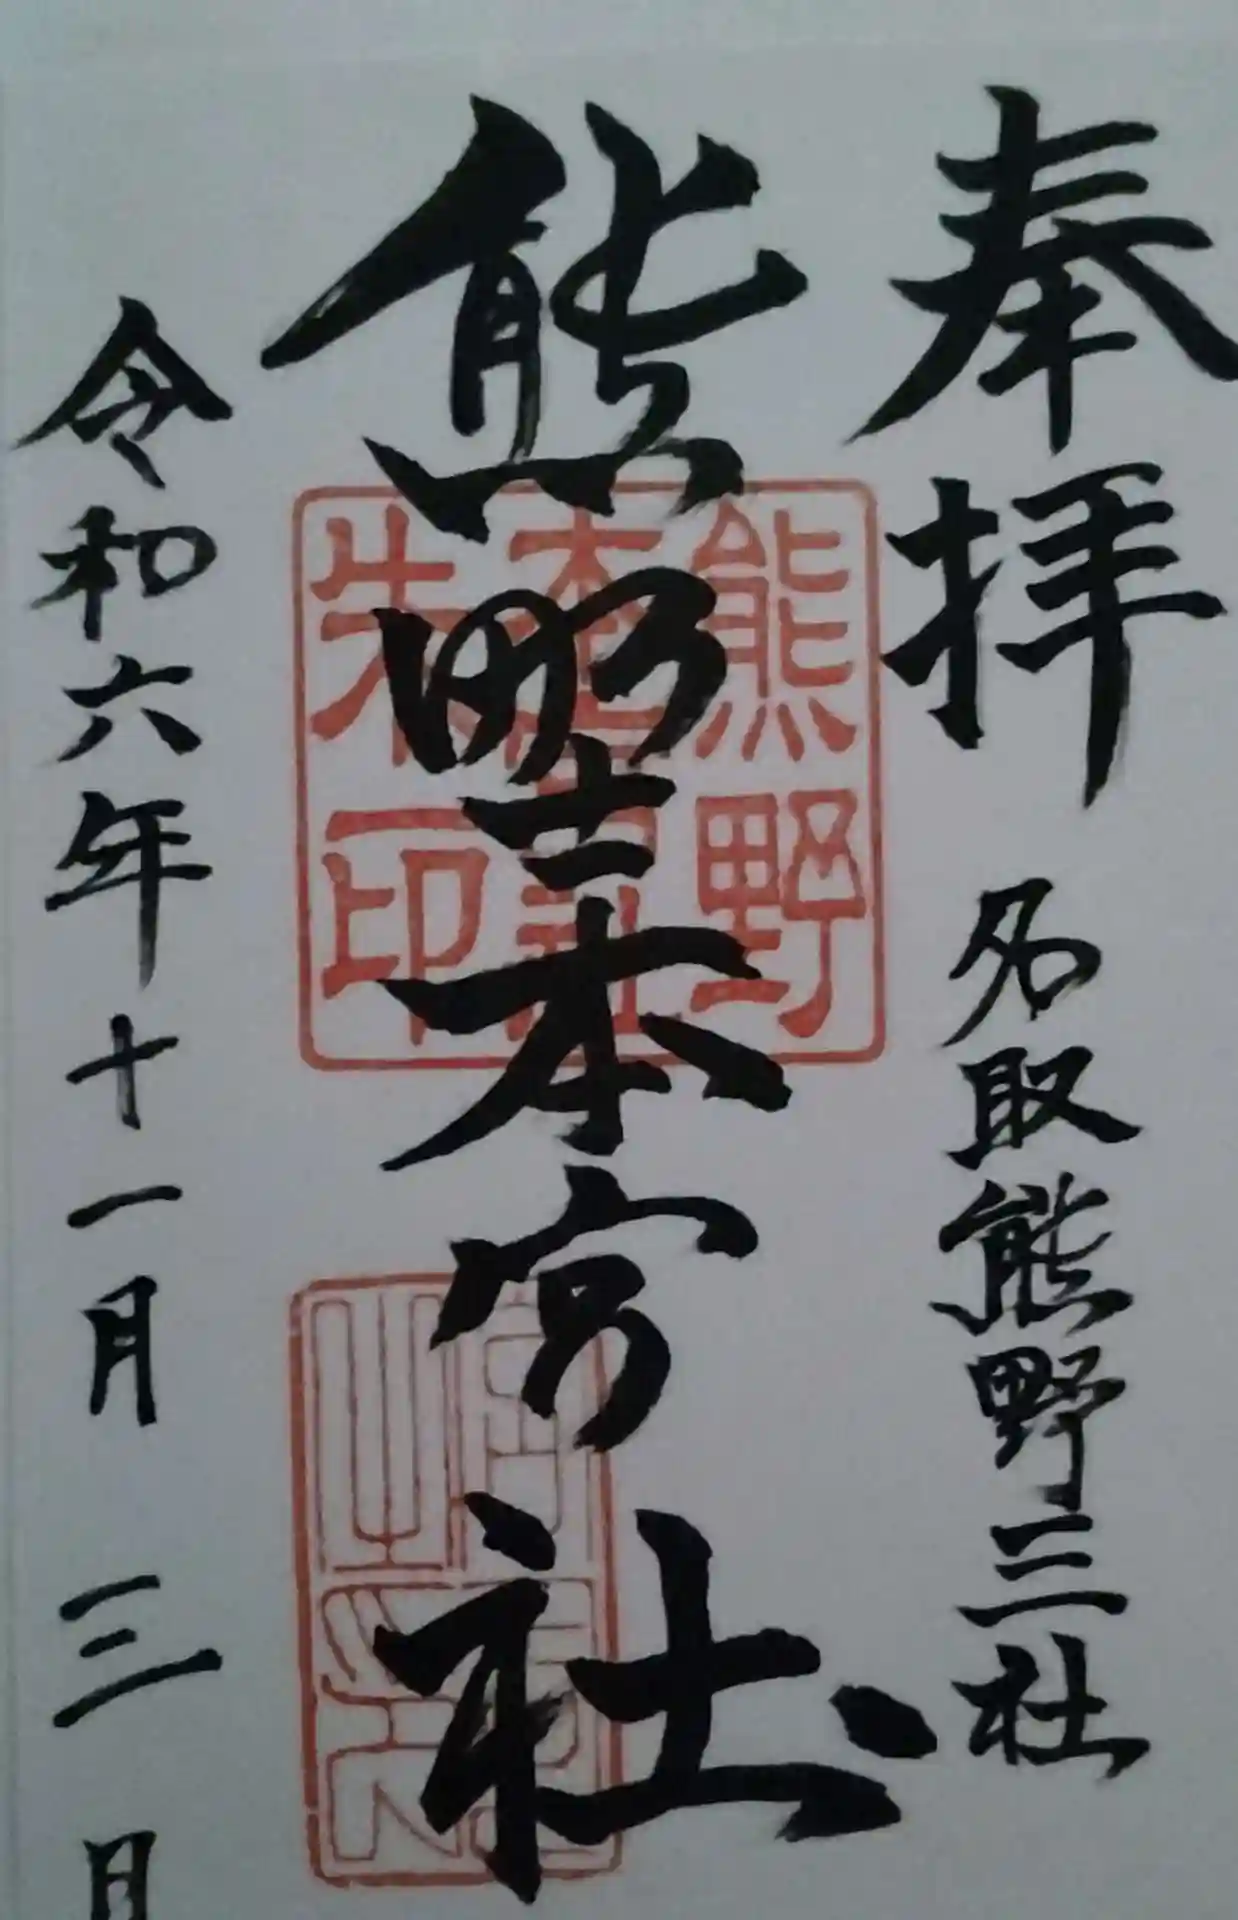 奉拝
名取熊野三社
熊野本宮社
令和六年十一月三日
熊野
本宮社
朱印